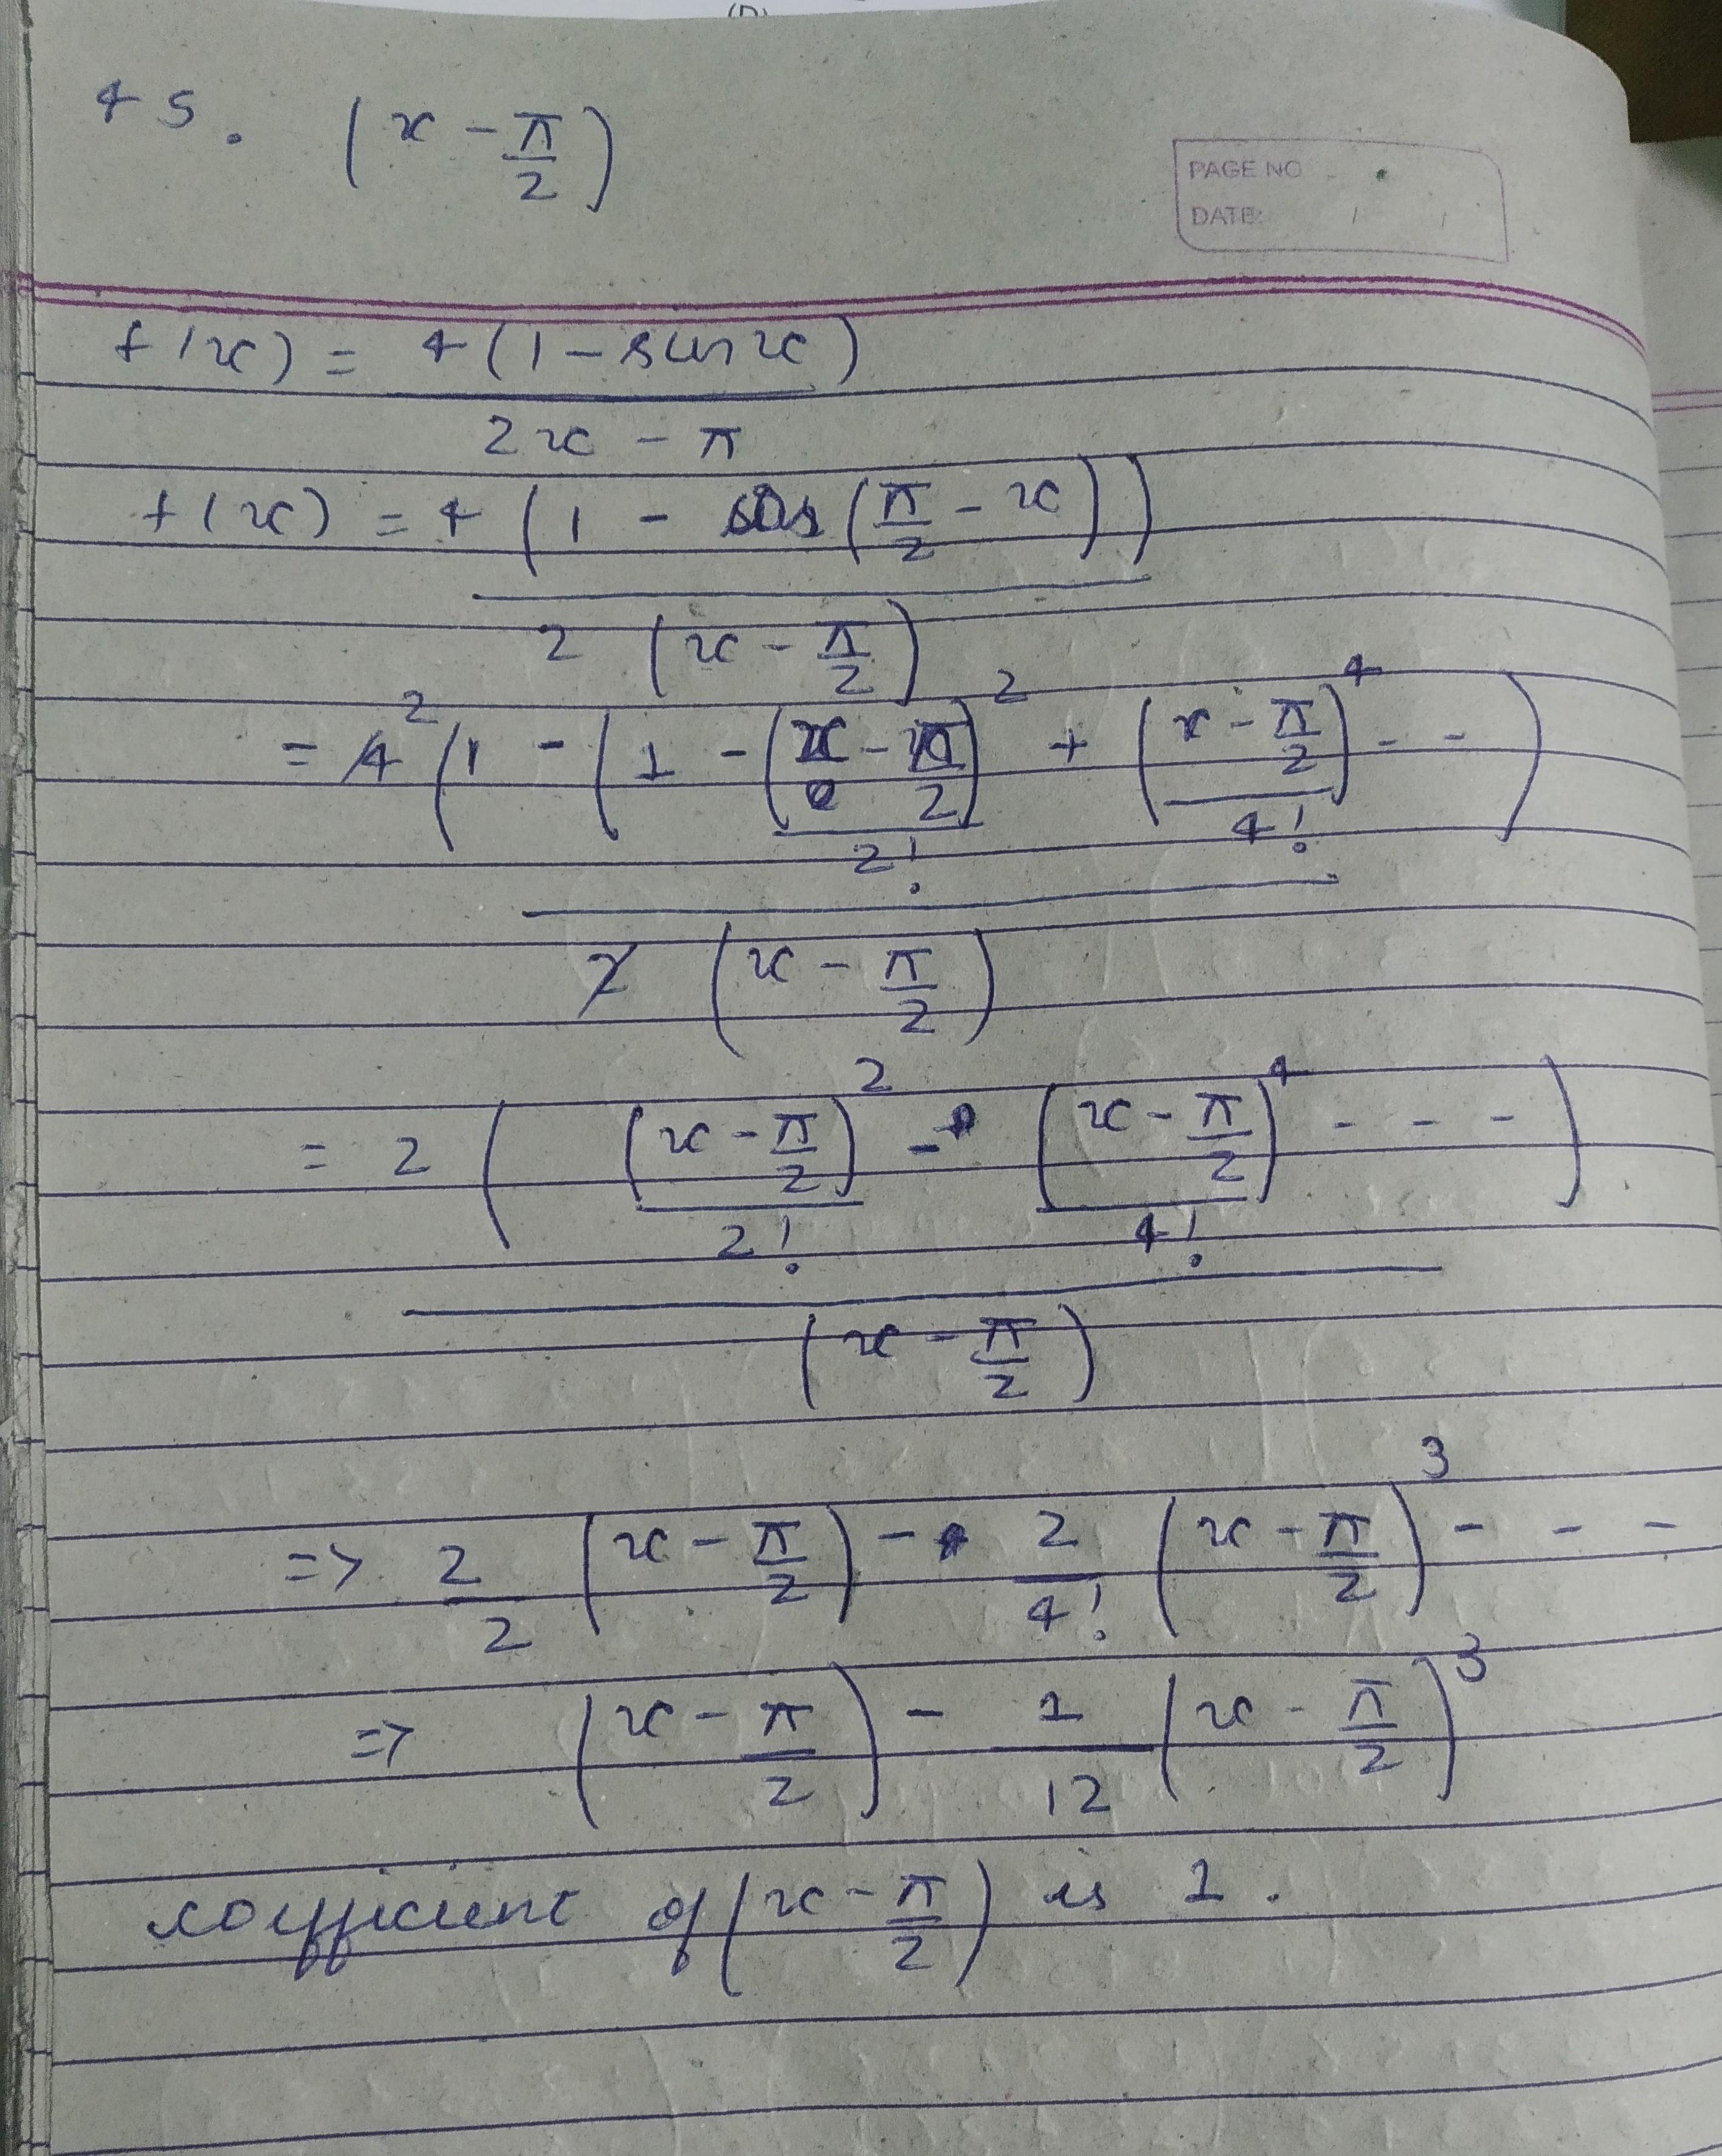 (D)
45. (x - π/2)
PAGE NO
DATE: / /
f(x) = 4(1 - sinx) / 2x - π
f(x) = 4(1 - cos(π/2 - x)) / 2(x - π/2)
= 4² (1 - (1 - (x - π/2)²/2! + (x - π/2)⁴/4! - - ) / 2(x - π/2)
= 2((x - π/2)²/2! - (x - π/2)⁴/4! - - - ) / (x - π/2)
=> 2/2 (x - π/2) - 2/4! (x - π/2)³ - - -
=> (x - π/2) - 1/12 (x - π/2)³
coefficient of (x - π/2) is 1.